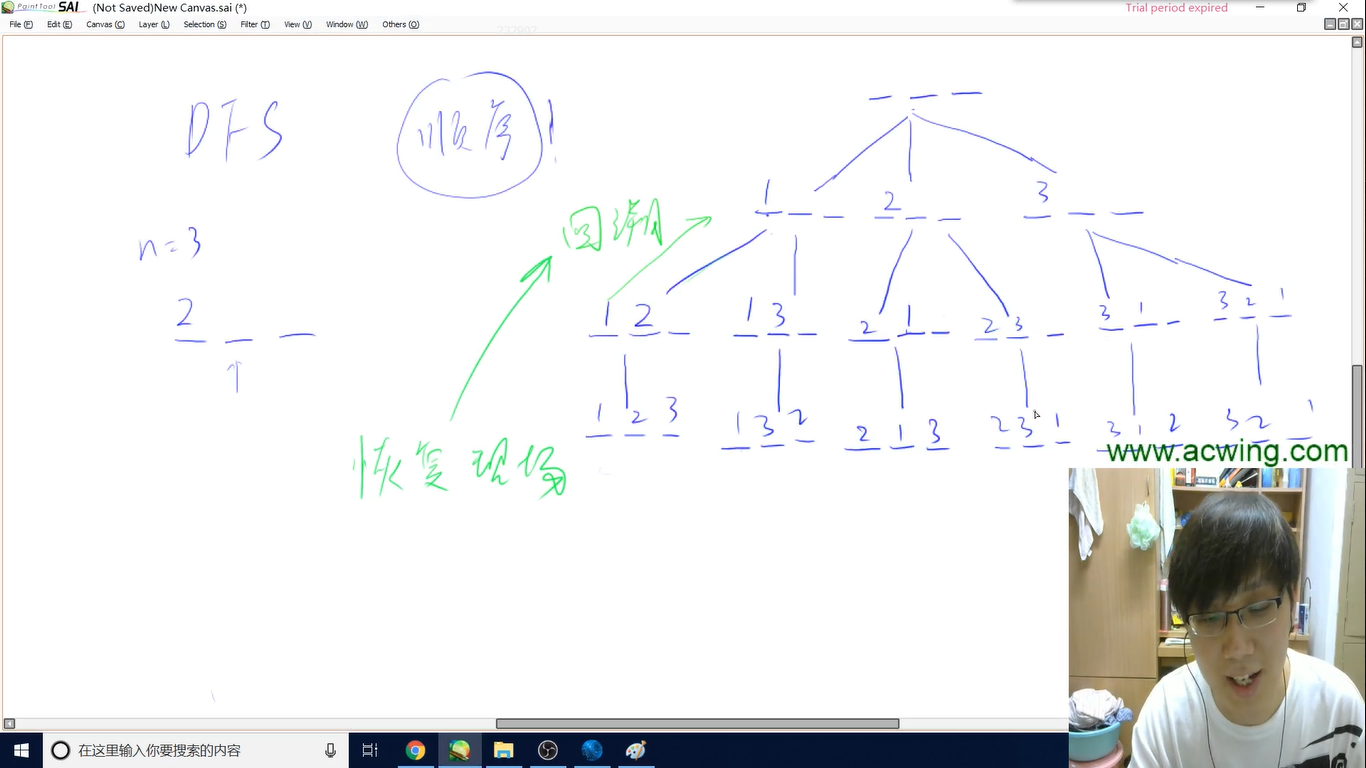 PaintTool SAI (Not Saved)New Canvas.sai (*)
Trial period expired
File (F) Edit (E) Canvas (C) Layer (L) Selection (S) Filter (T) View (V) Window (W) Others (O)
DFS 顺序!
n=3
2
回溯
恢复现场
1 2 3
1 2 1 3 2 1 2 3 3 1 3 2 1
1 2 3 1 3 2 2 1 3 2 3 1 3 1 2 3 2 1
www.acwing.com
在这里输入你要搜索的内容